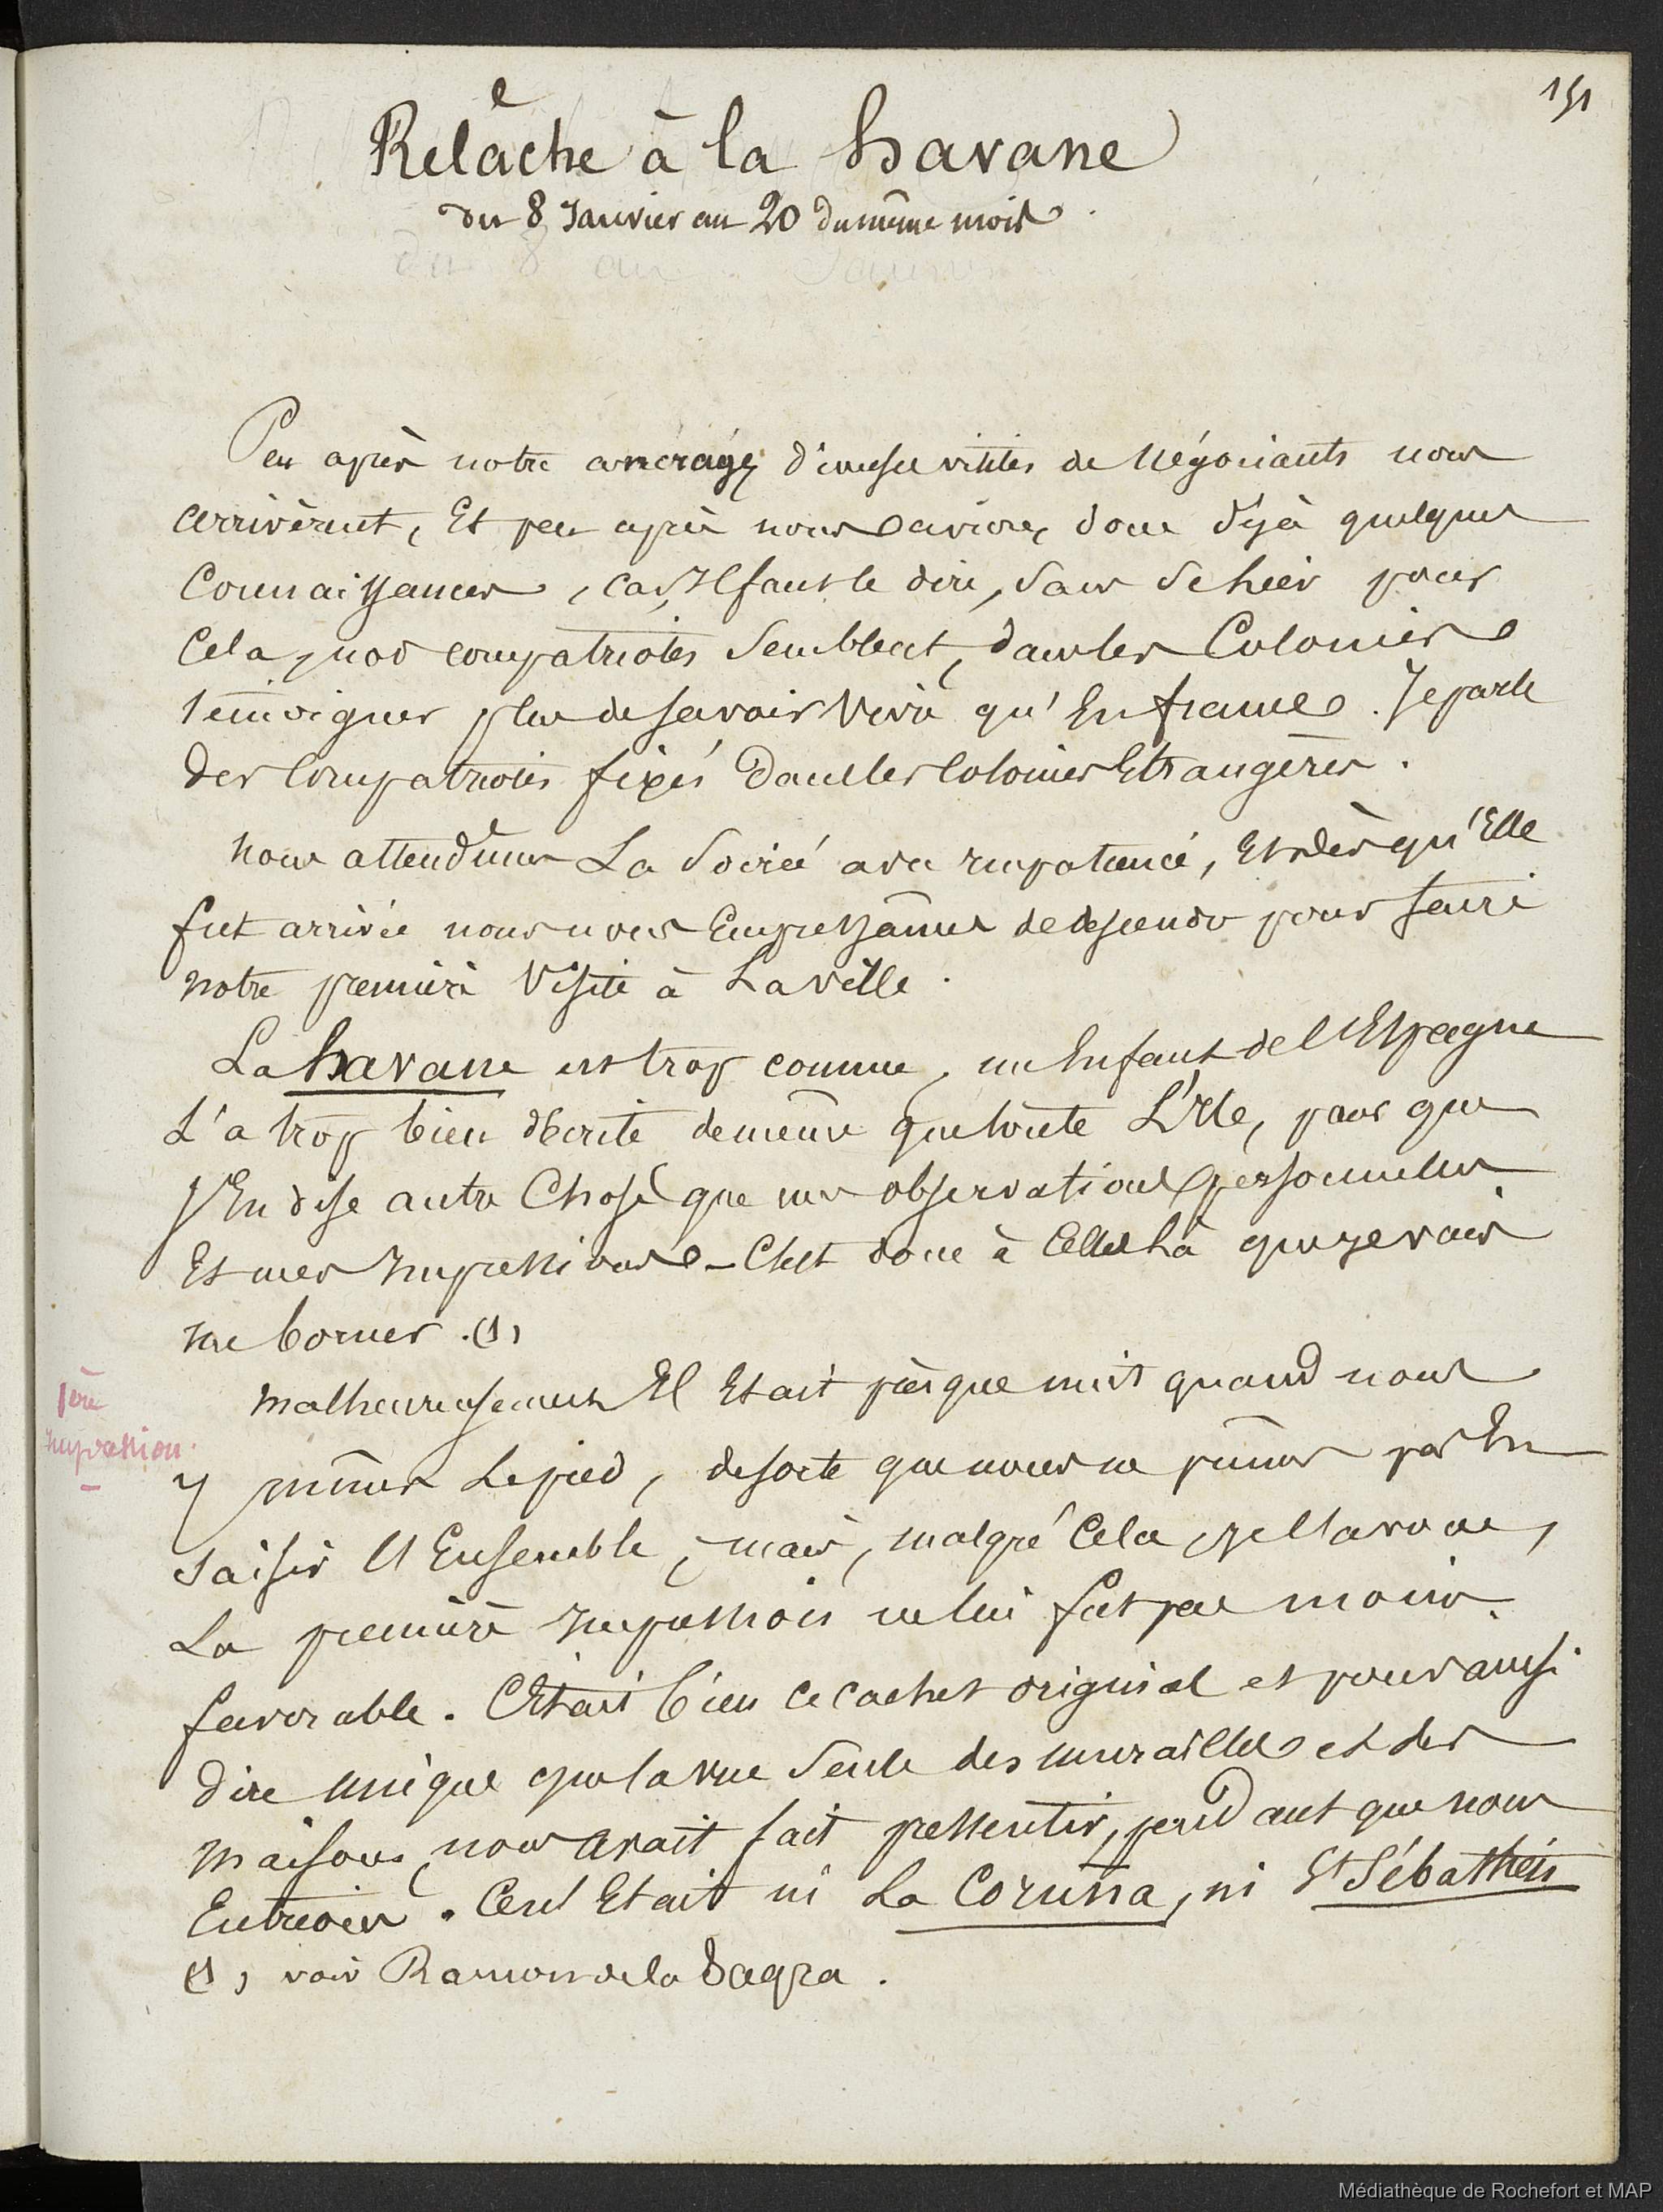 151
Relâche à la havane
du 8 Janvier au 20 du même mois.
Peu après notre ancrage, diverses visites de Négociants nous
arrivèrent, Et peu après nous avions donc déjà quelques
Connaissances, car, Il faut le dire, sans se hier pour
Cela, nos compatriotes Semblent, dans les Colonies
témoigner plus de savoir vivre qu'En france. Je parle
des Compatriotes fixés dans les Colonies Etrangères.
Nous attendîmes La Soirée avec impatience, Et dès qu'Elle
fut arrivée nous nous Empressâmes de descendre pour faire
notre première Visite à La ville.
La havane est trop connue, un Enfant de l'Espagne
L'a trop bien décrite de même que toute L'Ile, pour que
J'En dise autre Chose que mes observations personnelles
Et mes Impressions - C'est donc à Celles là que je vais
me borner. (1)
1ère
Impression.
Malheureusement Il Etait presque nuit quand nous
y mîmes Le pied, de sorte que nous ne pûmes pas En
saisir l'Ensemble, mais, malgré Cela, je l'avoue,
La première Impression ne lui fut pas moins
favorable. C'Etait bien ce cachet original et pour ainsi
dire unique que la vue Seule des murailles et des
Maisons, nous avait fait pressentir, pendant que nous
Entrions. Ce n'Etait ni La Coruña, ni St Sébastien
(1) voir Ramon de la Sagra.
Médiathèque de Rochefort et MAP